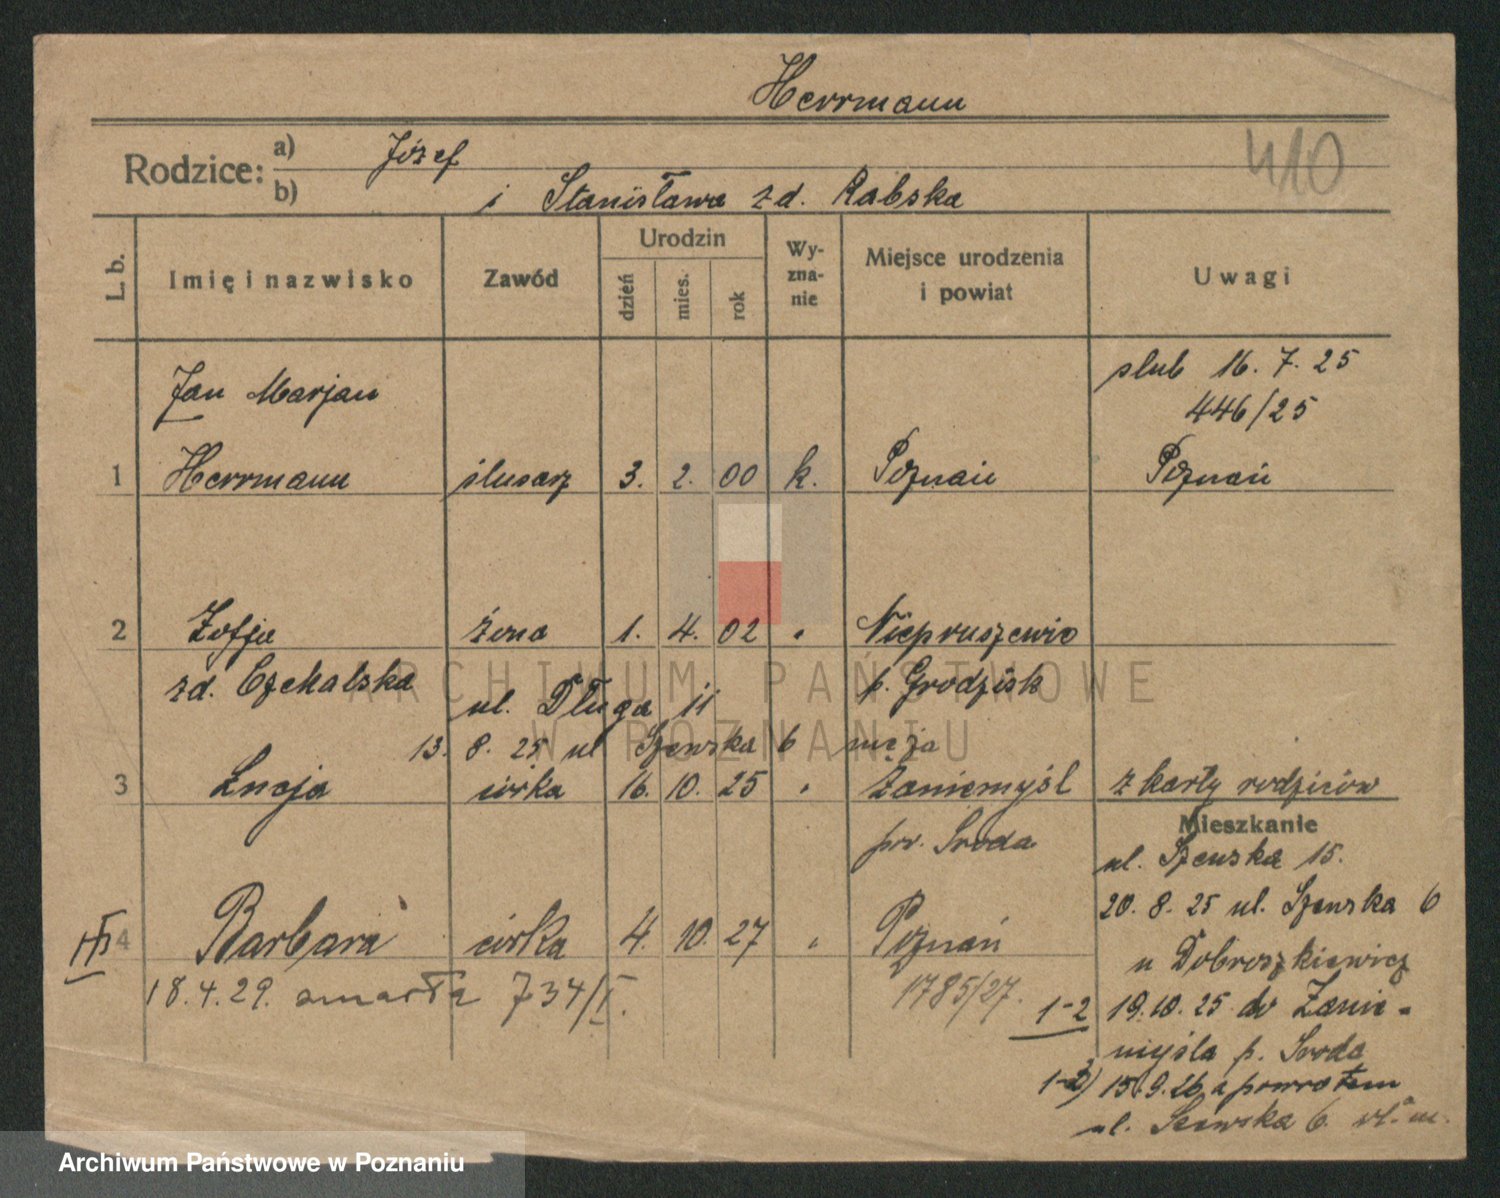 Herrmann
410
Rodzice: a) Józef
b) i Stanisława zd. Rabska
L. b. Imię i nazwisko Zawód Urodzin dzień mies. rok Wy-zna-nie Miejsce urodzenia i powiat Uwagi
Jan Marjan ślub 16. 7. 25
446/25
1 Herrmann ślusarz 3. 2. 00 k. Poznań Poznań
2 Zofja żona 1. 4. 02 " Niepruszewie
zd. Czekalska p. Grodzisk
ul. Długa 11
13. 8. 25 ul Szewska 6 męża
3 Łucja córka 16. 10. 25 " Zaniemyśl z karty rodziców
pow. Środa
Mieszkanie
ul. Szewska 15.
20. 8. 25 ul. Szewska 6
III 4 Barbara córka 4. 10. 27 " Poznań
u Dobroszkiewicz
18. 4. 29. zmarła 734/I. 1785/27.
1-2 19. 10. 25 do Zanie-
myśla p. Środa
1-3) 15. 9. 26 z powrotem
ul. Szewska 6.
ARCHIWUM PAŃSTWOWE
W POZNANIU
Archiwum Państwowe w Poznaniu